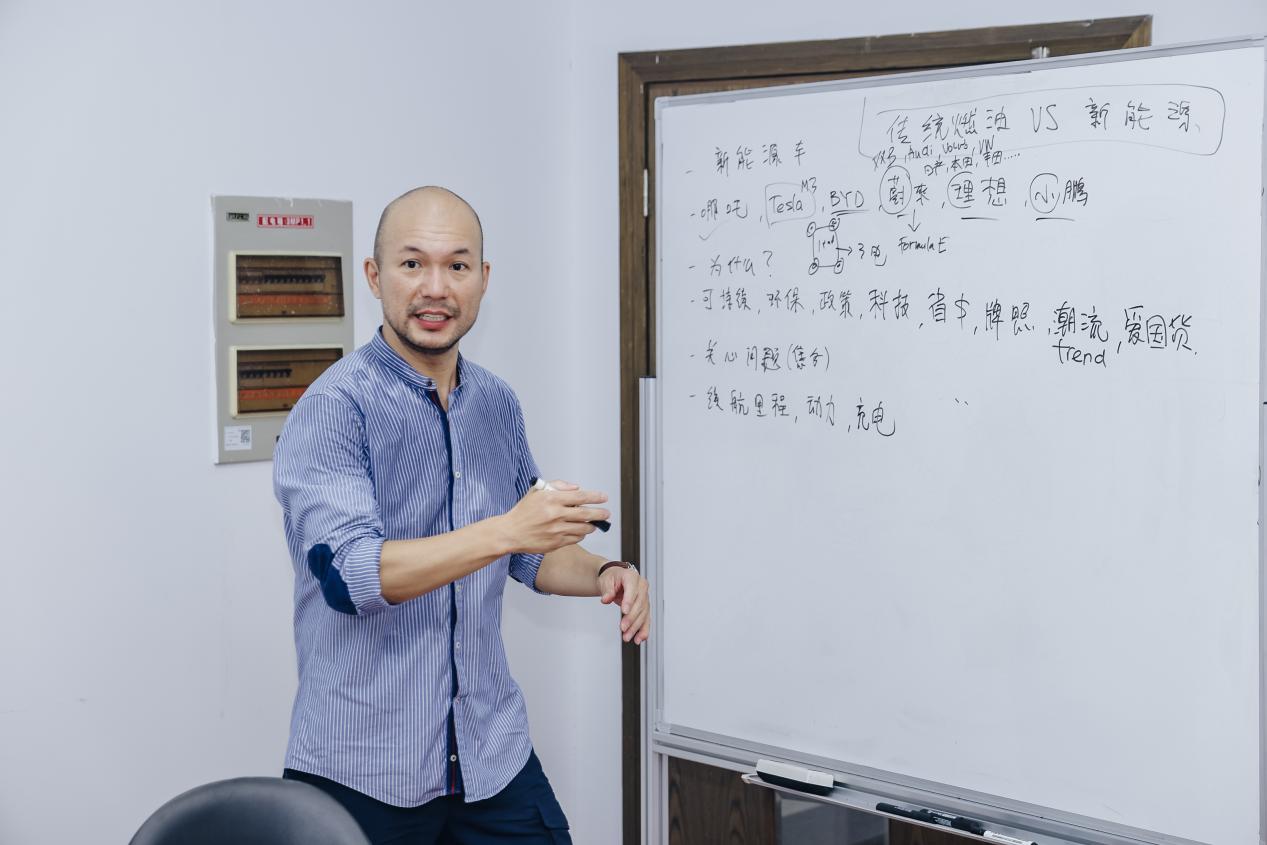 传统燃油 VS 新能源
- 新能源车
Audi, Volvo, VW
日产, 本田, 丰田.....
M3
- 哪吒, Tesla, BYD, 蔚来, 理想, 小鹏
→ 3电
formula E
- 为什么?
- 可持续, 环保, 政策, 科技, 省本, 牌照, 潮流, 爱国货.
trend
- 关心问题(集分)
- 续航里程, 动力, 充电